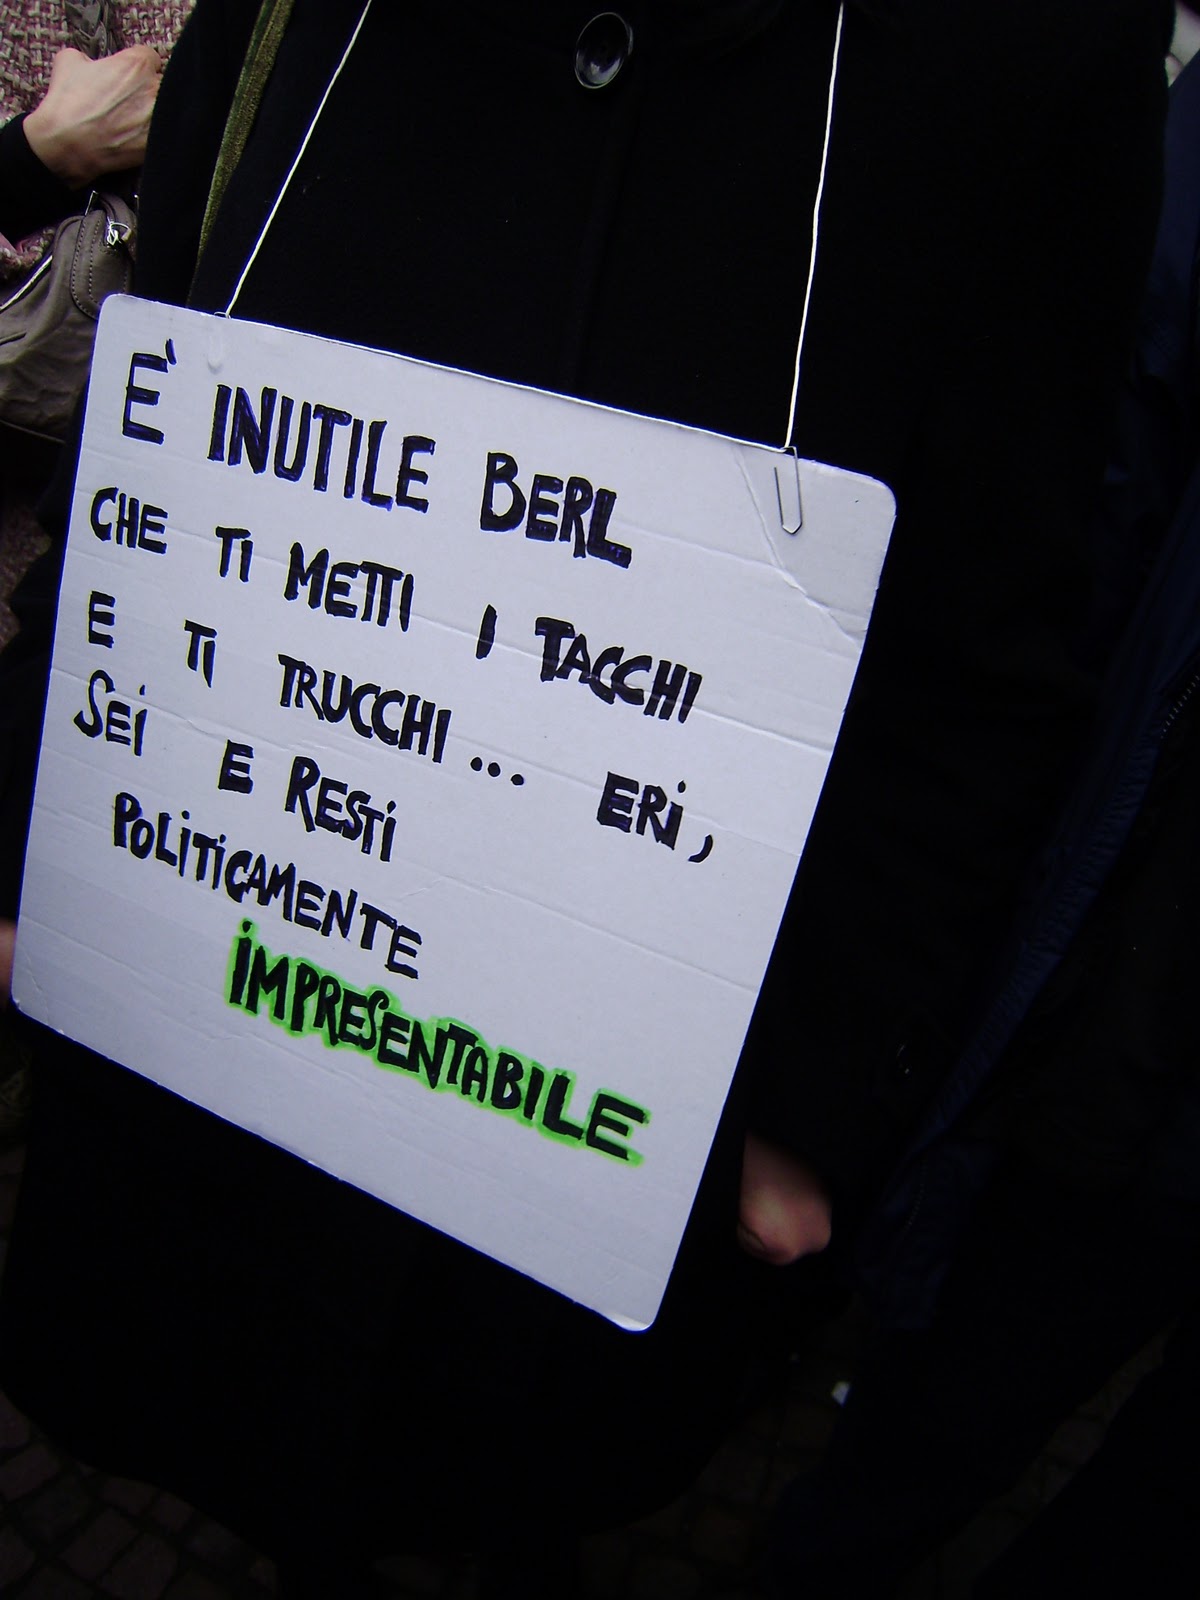 È INUTILE BERL
CHE TI METTI I TACCHI
E TI TRUCCHI... ERi,
SEi E RESTi
POLiTiCAMENTE
iMPRESENTABILE